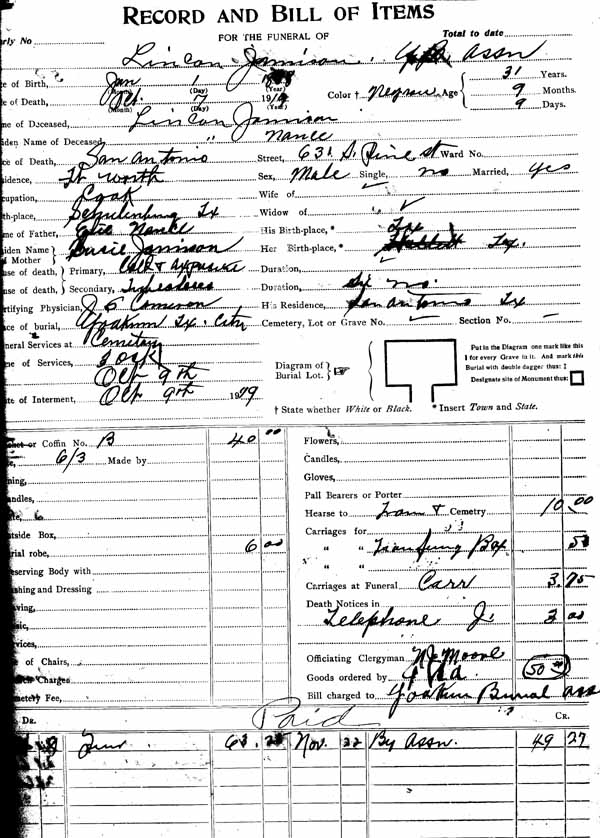 RECORD AND BILL OF ITEMS
FOR THE FUNERAL OF
rly No Total to date
Lincon Jamison. Assn
e of Birth, Jan (Month) 1 (Day) (Year) 31 Years.
e of Death, Oct (Month) 7 (Day) 19 (Year) Color † Age 9 Months.
9 Days.
me of Deceased, Lincon Jamison
iden Name of Deceased, " Nance
ce of Death, San Antonio Street, 631 S. Pine st Ward No.
idence, Ft Worth Sex, Male Single, no Married, yes
cupation, Cook Wife of
th-place, Schulenburg Tx Widow of
me of Father, Nance His Birth-place,* Tex
iden Name of Mother Susie Jamison Her Birth-place,* Tex.
use of death, Primary, Cold & Exposure Duration,
use of death, Secondary, Duration, Six mo.
rtifying Physician, J E Cameron His Residence, San Antonio Tx
ace of burial, Yoakum Tx. City Cemetery, Lot or Grave No. Section No.
neral Services at Cemetary
me of Services, Oct 9th
te of Interment, Oct 9th 19
Diagram of Burial Lot.
Put in the Diagram one mark like this I for every Grave in it. And mark this Burial with double dagger thus: ‡
Designate site of Monument thus:
† State whether White or Black. * Insert Town and State.
or Coffin No. B 40 00
6/3 Made by
ning,
ndles,
tside Box,
rial robe, 6 00
eserving Body with
shing and Dressing
aving,
sic,
vices,
e of Chairs,
Charges
metery Fee,
Flowers,
Candles,
Gloves,
Pall Bearers or Porter
Hearse to Train & Cemetry 10.00
Carriages for
" " Box 50
" "
Carriages at Funeral Carr 3.75
Death Notices in
Telephone 3 00
Officiating Clergyman Moore
Goods ordered by 50
Bill charged to Yoakum Burial Ass
Dr. Paid Cr.
63. 25 Nov. 22 By Assn. 49 27